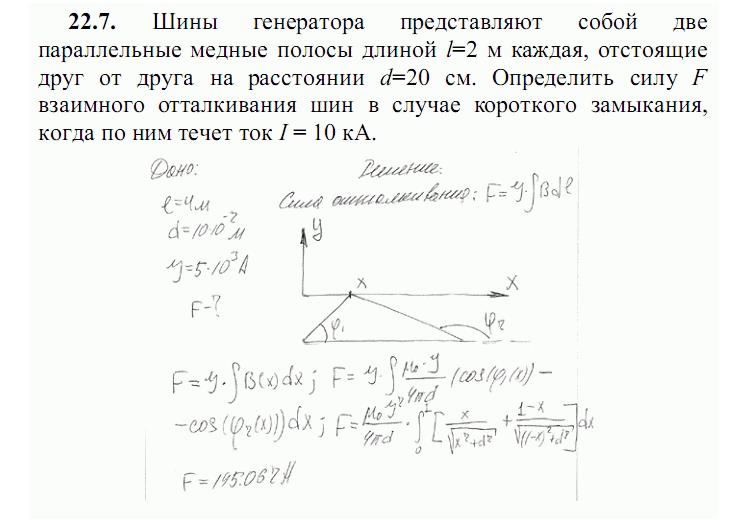 22.7. Шины генератора представляют собой две
параллельные медные полосы длиной l=2 м каждая, отстоящие
друг от друга на расстоянии d=20 см. Определить силу F
взаимного отталкивания шин в случае короткого замыкания,
когда по ним течет ток I = 10 кА.
Дано:
l=4м
d=10·10^-2 м
y=5·10^3 А
F-?
Решение:
Сила отталкивания: F=y·∫Bdl
y
x
x
φ1
φ2
F=y·∫B(x)dx; F=y·∫ μ0·y/4πd (cos(φ1(x))-
-cos(φ2(x)))dx; F= μ0y²/4πd · ∫0^1 [x/√(x²+d²) + (1-x)/√((1-x)²+d²)]dx
F=195.062Н